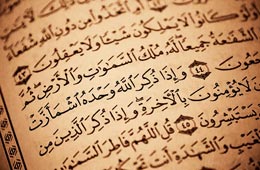 مِن دُونِ ٱللَّهِ شُفَعَآءَ
كَانُوا۟ لَا يَمْلِكُونَ شَيْـًٔا وَلَا يَعْقِلُونَ ٤٣
ٱلشَّفَـٰعَةُ جَمِيعًا لَّهُۥ مُلْكُ ٱلسَّمَـٰوَٰتِ وَٱلْأَرْضِ ثُمَّ
جَعُونَ ٤٤ وَإِذَا ذُكِرَ ٱللَّهُ وَحْدَهُ ٱشْمَأَزَّتْ
لَا يُؤْمِنُونَ بِٱلْـَٔاخِرَةِ وَإِذَا ذُكِرَ ٱلَّذِينَ مِن
يَسْتَبْشِرُونَ ٤٥ قُلِ ٱللَّهُمَّ فَاطِرَ ٱلسَّمَـٰوَٰتِ
ٱلْغَيْبِ وَٱلشَّهَـٰدَةِ أَنتَ